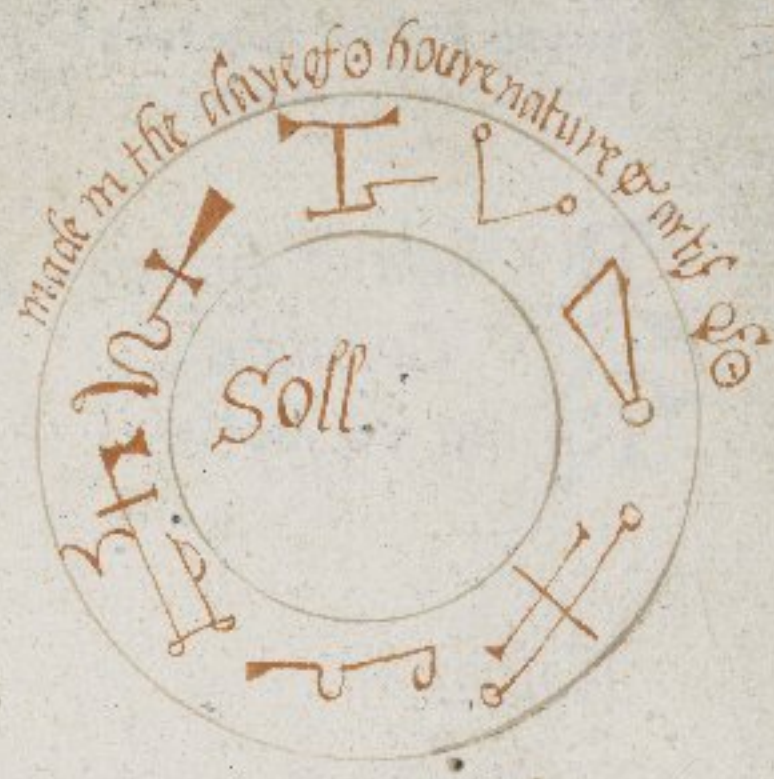 made in the daye of ☉ houre nature & artif of ☉
Soll